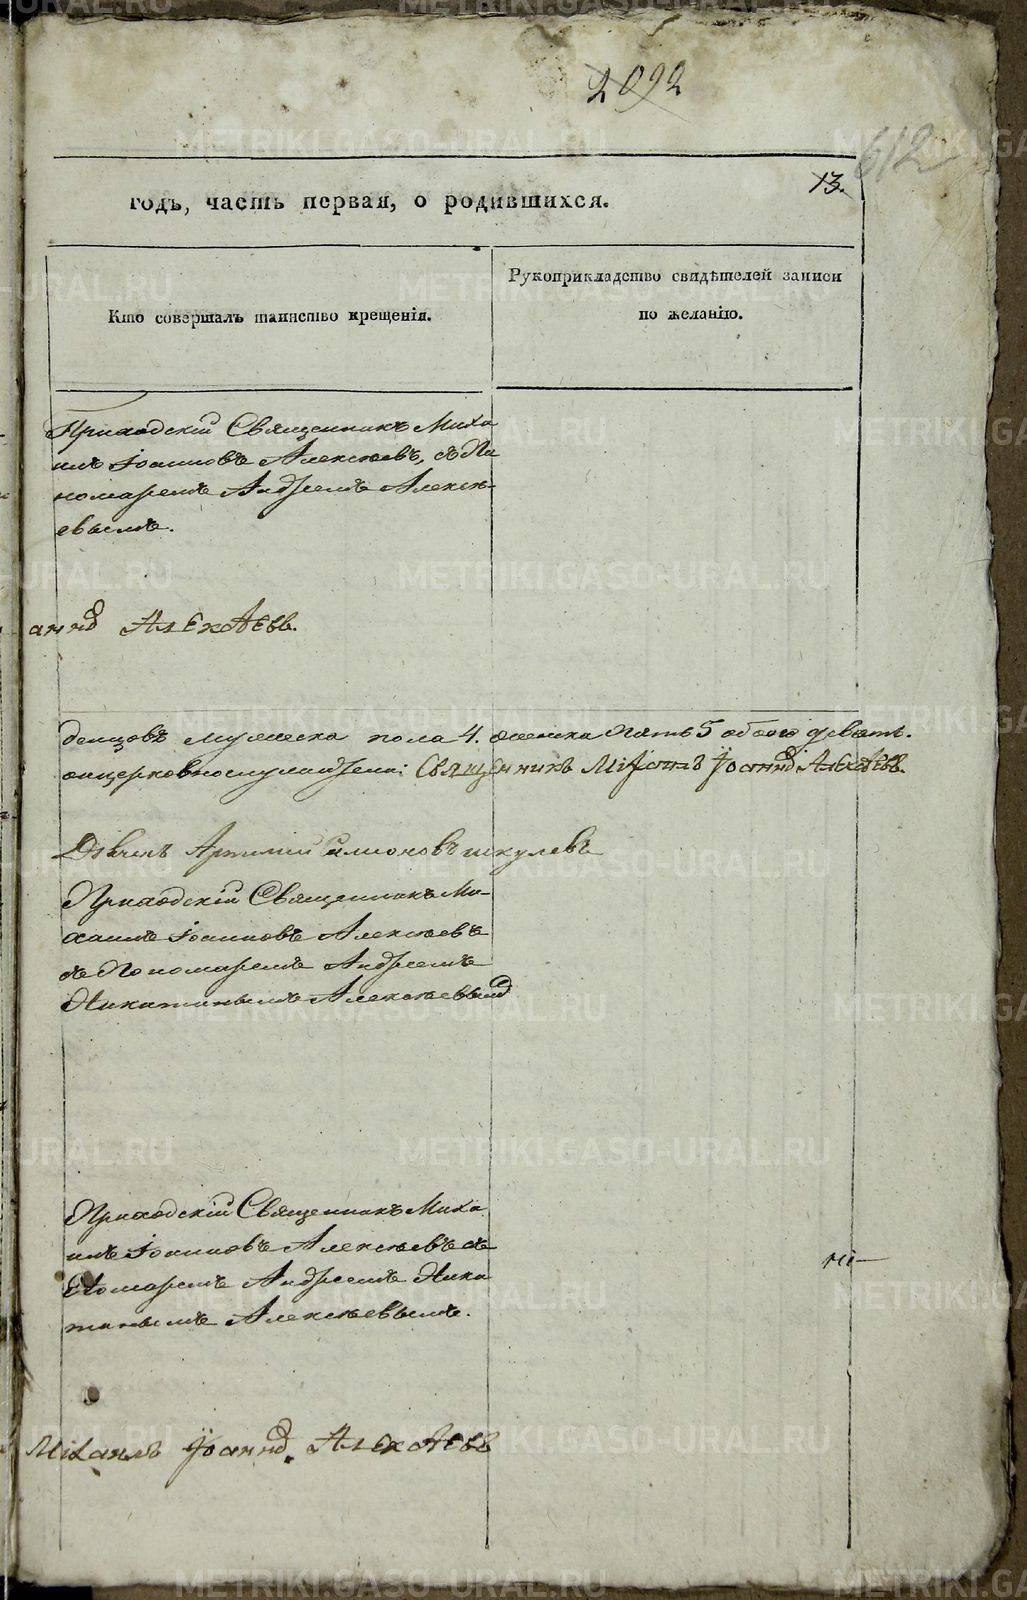 2092
612
13.
годъ, часть первая, о родившихся.
Кто совершалъ таинство крещенія.
Рукоприкладство свидѣтелей записи
по желанію.
Приходскій Священникъ Миха
илъ Іоанновъ Алексѣевъ, съ По
номаремъ Андреемъ Алексѣ-
евымъ.
Алексѣевъ.
денцовъ мужеска пола 4. женска пять 5 обоего девять.
Священникъ Михаилъ Іоаннъ Алексѣевъ.
Дьячекъ
Приходскій Священникъ Ми-
хаилъ Іоанновъ Алексѣевъ
съ Пономаремъ Андреемъ
Никитинымъ Алексѣевымъ
Приходскій Священникъ Миха
илъ Іоанновъ Алексѣевъ съ
Пономаремъ Андреемъ Ники
тинымъ Алексѣевымъ.
Михаилъ Іоаннъ Алексѣевъ
METRIKI.GASO-URAL.RU